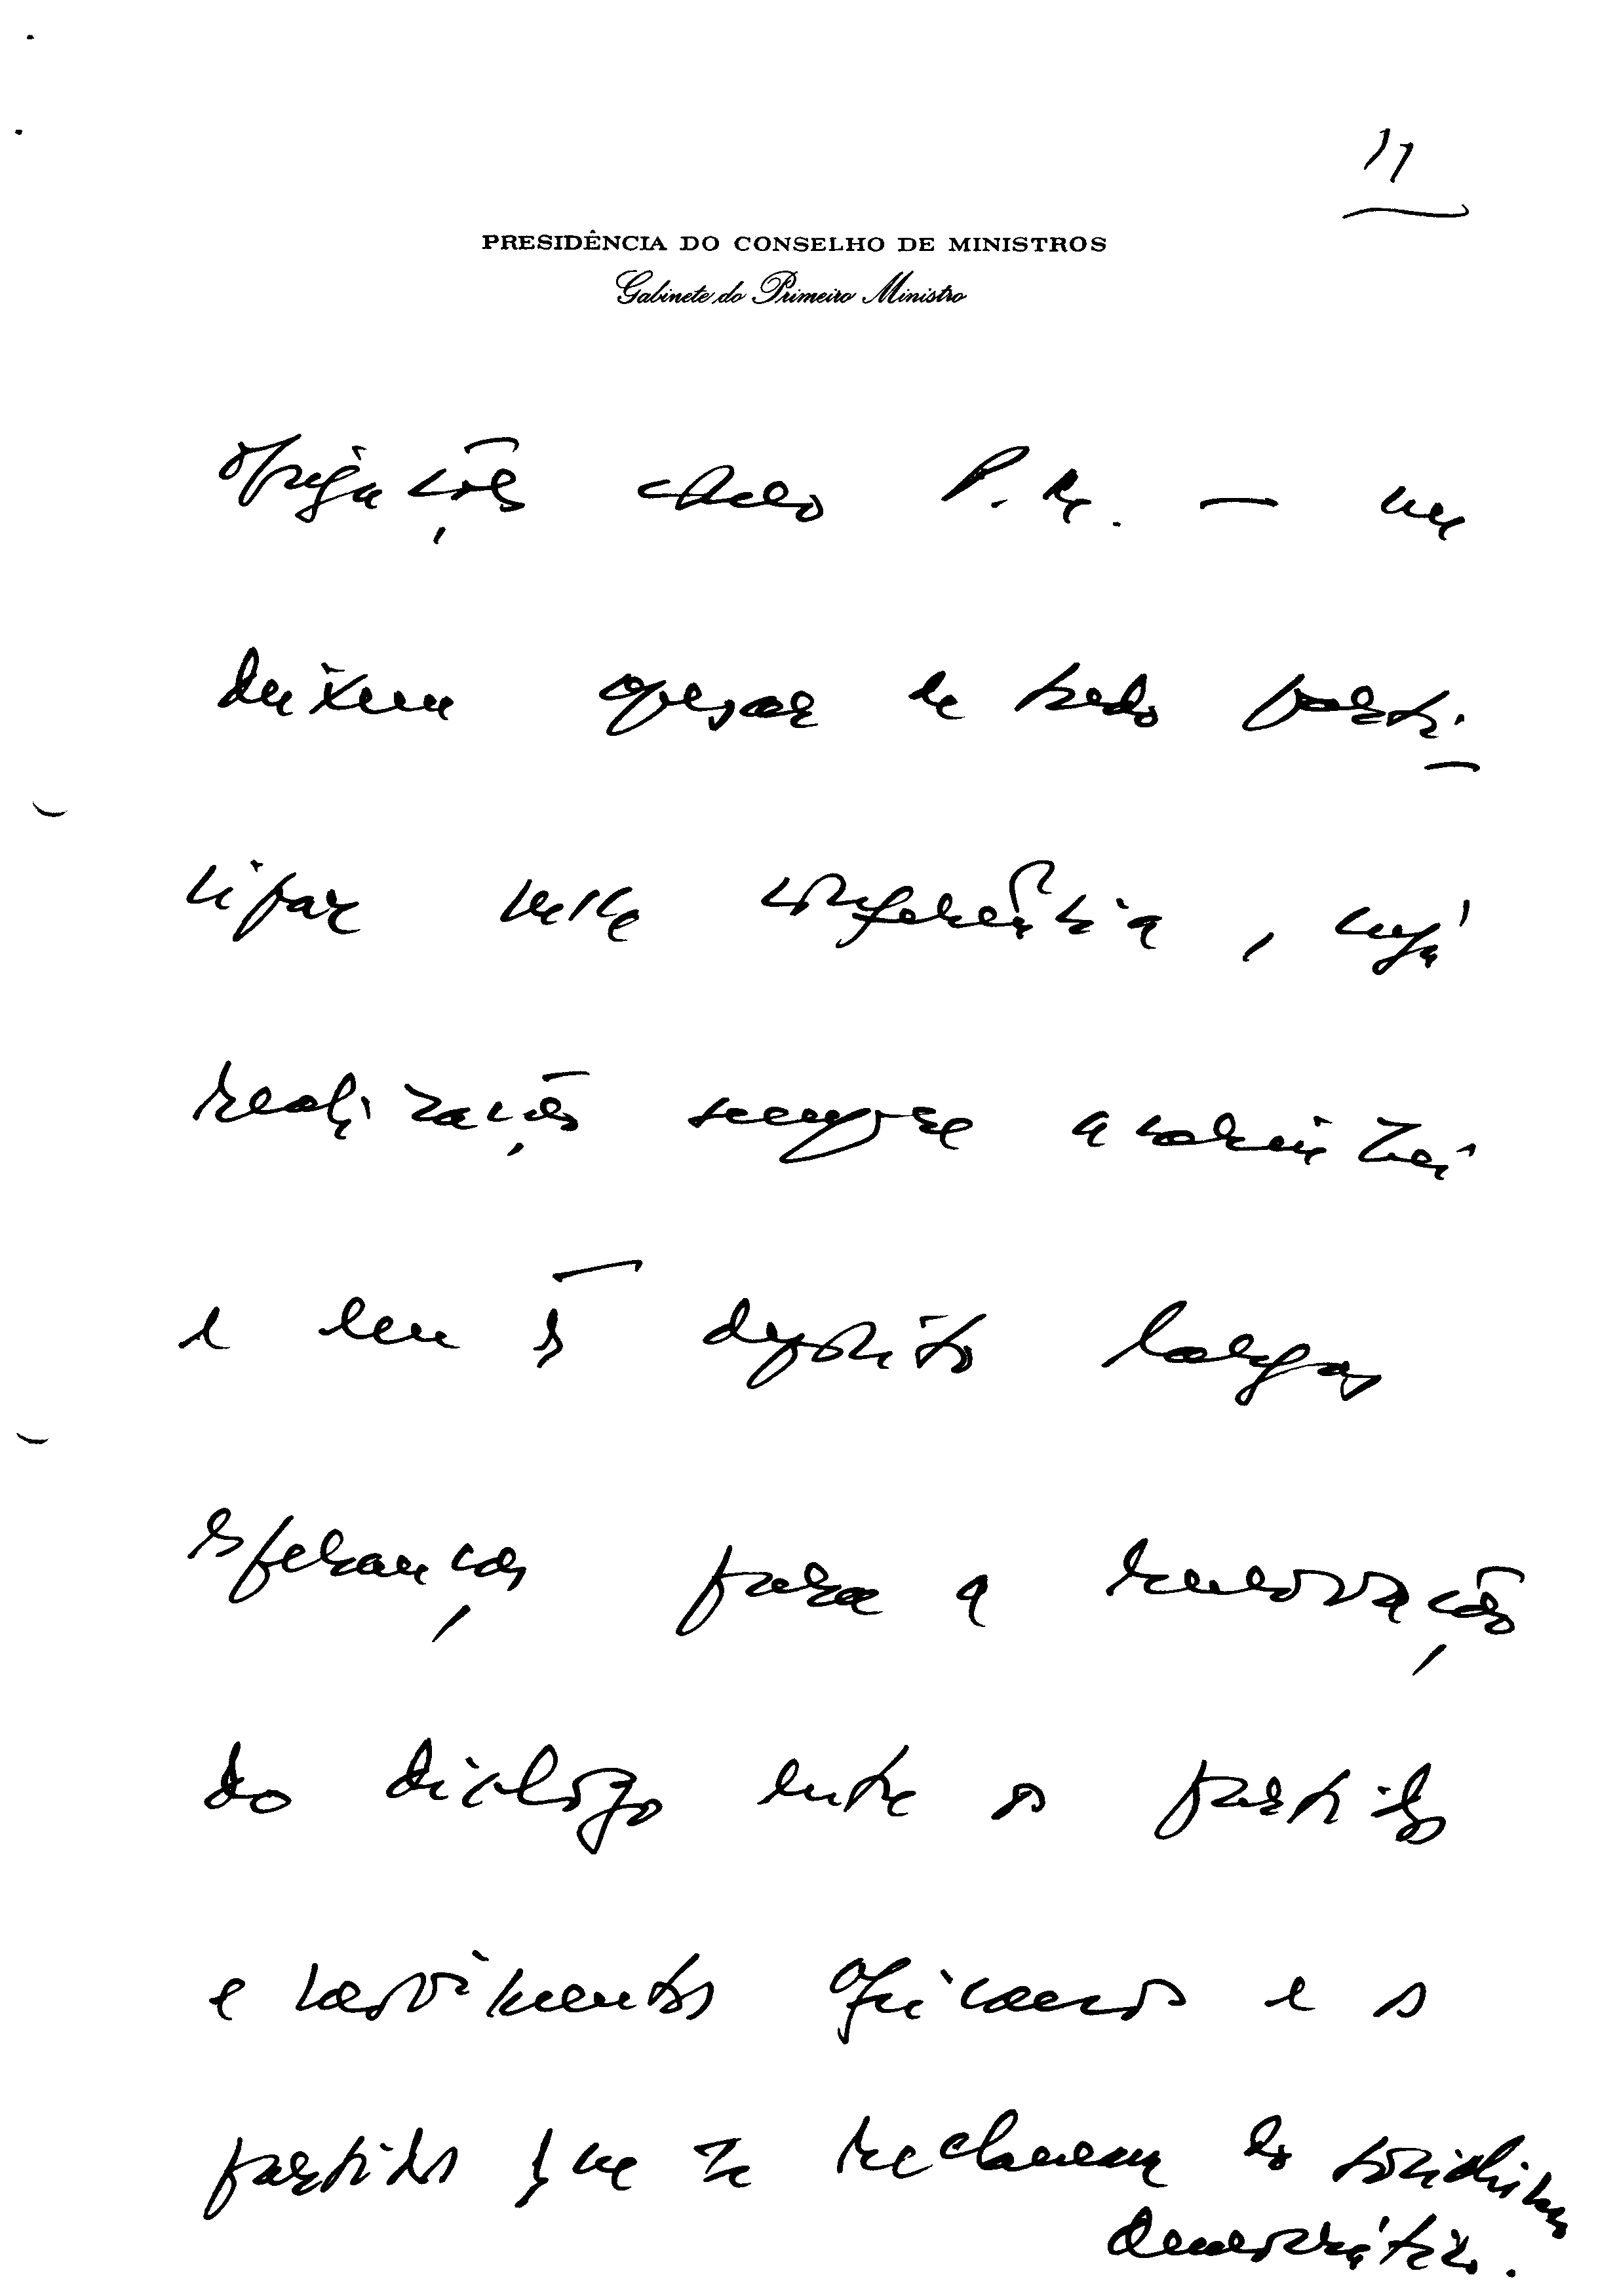 11
PRESIDÊNCIA DO CONSELHO DE MINISTROS
Gabinete do Primeiro Ministro
obrigações como P.M. — me
deixem apesar de tudo parti-
cipar nesta conferência, cuja
realização sempre acarinhei
e em q̄ deposito largas
esperanças para a renovação
do diálogo entre os partidos
e movimentos africanos e os
partidos que se reclamam do socialismo
democrático.